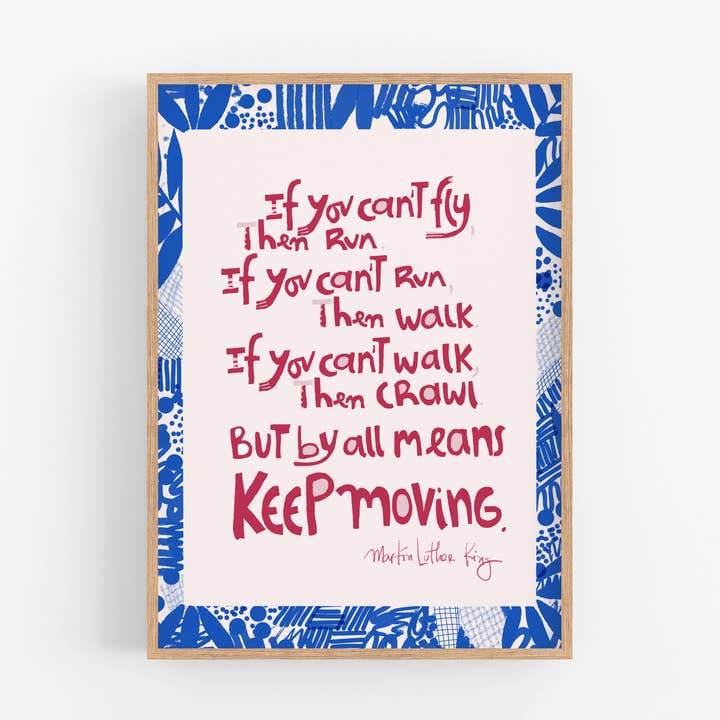 If you can't fly,
Then Run.
If you can't Run,
Then walk.
If you can't walk,
Then crawl.
But by all means
Keep moving.
Martin Luther King